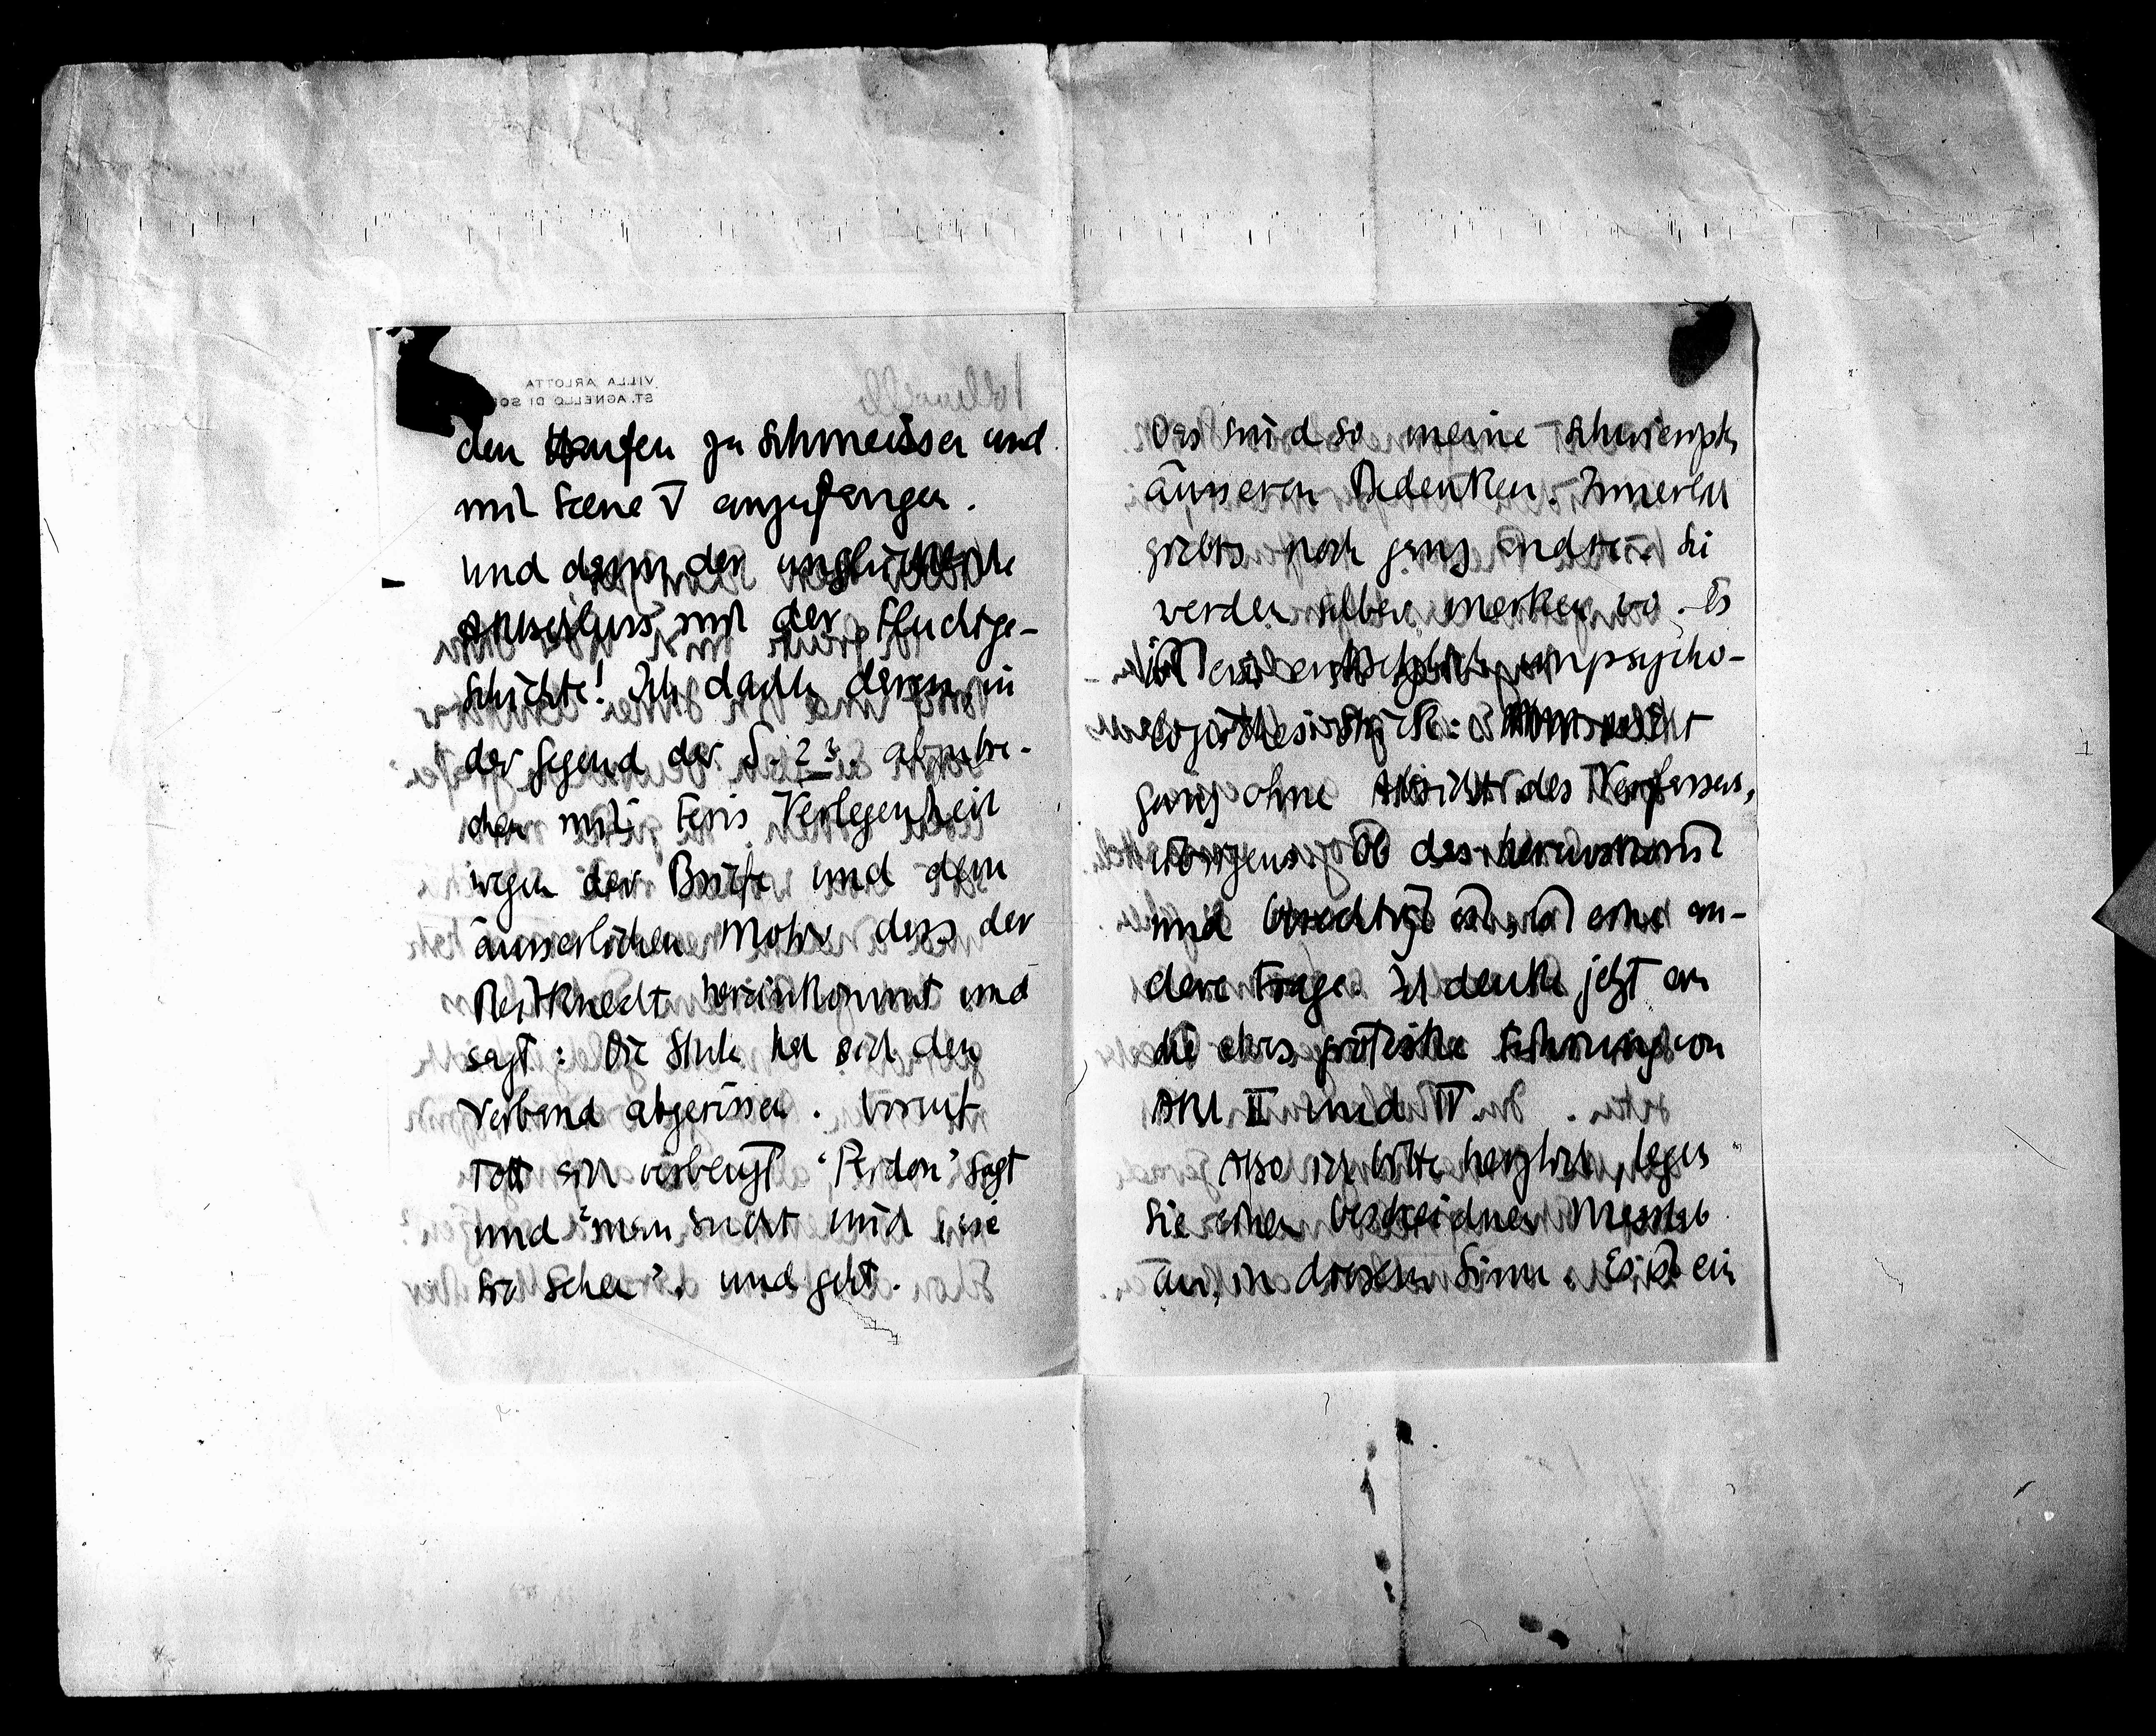 VILLA ARLOTTA
ST. AGNELLO DI
den Haufen zu schmeissen und
mit Scene V anzufangen.
und dann der unglückliche
Aktschluss mit der Fluchtge-
schichte! Ich dachte daran, in
der Gegend der S. 23. abzubre-
chen mit Feris Verlegenheit
wegen der Briefe und dem
äusserlichen Motiv dass der
Reitknecht hereinkommt und
sagt: Die Stute hat sich den
Verband abgerissen. Worauf
Tott sich verbeugt "Pardon" sagt
und "man sucht mich wie
Sie sehen". und geht.
Das sind so meine
äusseren Bedenken. Innerlich
giebts noch ganz andre. Sie
werden selber merken wo. Es
ist ein entsetzlich unpsycho-
logisches Stück:
ganz ohne Absicht des Verfassers,
übrigens. Ob das herauskommt
und berechtigt ist, ist eine an-
dere Frage. Ich denke jetzt an
die etwas groteske Führung von
Akt II und IV.
Also ich bitte herzlich, legen
Sie einen bescheidnen Masstab
an, in diesem Sinn. Es ist ein